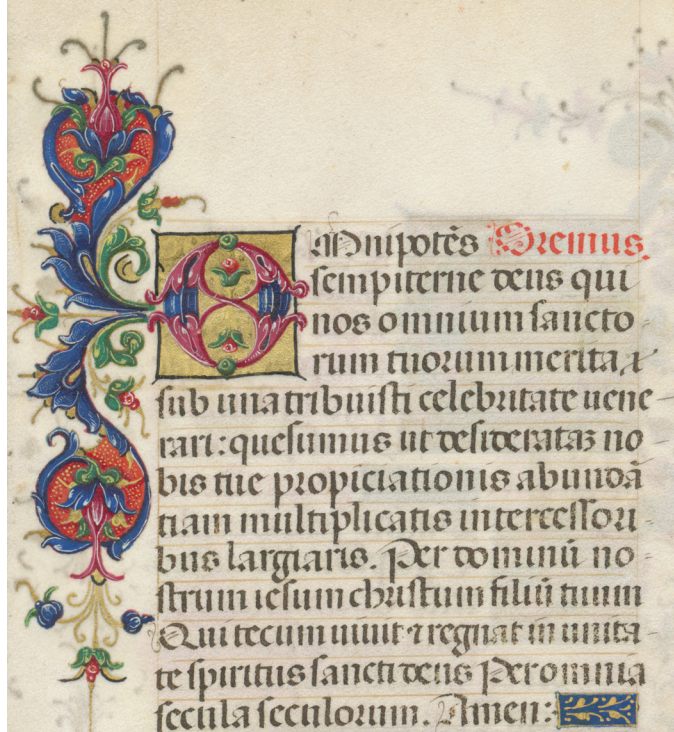 Omnipotēs Oremus.
sempiterne deus qui
nos omnium sancto-
rum tuorum merita
sub una tribuisti celebritate uene-
rari: quesumus ut desideratā no-
bis tue propiciationis abundā
tiam multiplicatis intercessori-
bus largiaris. Per dominū no-
strum iesum christum filiū tuum
Qui tecum uiuit ⁊ regnat in unita-
te spiritus sancti deus Per omnia
secula seculorum. Amen: